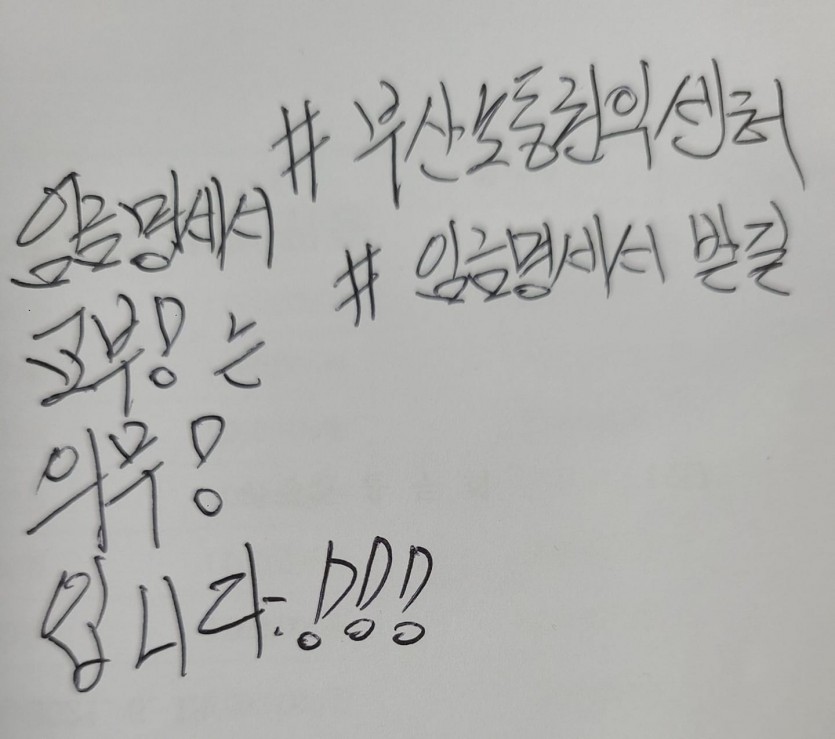 # 부산노동권익센터
# 임금명세서 받길
임금명세서
교부! 는
의무!
입니다!!!